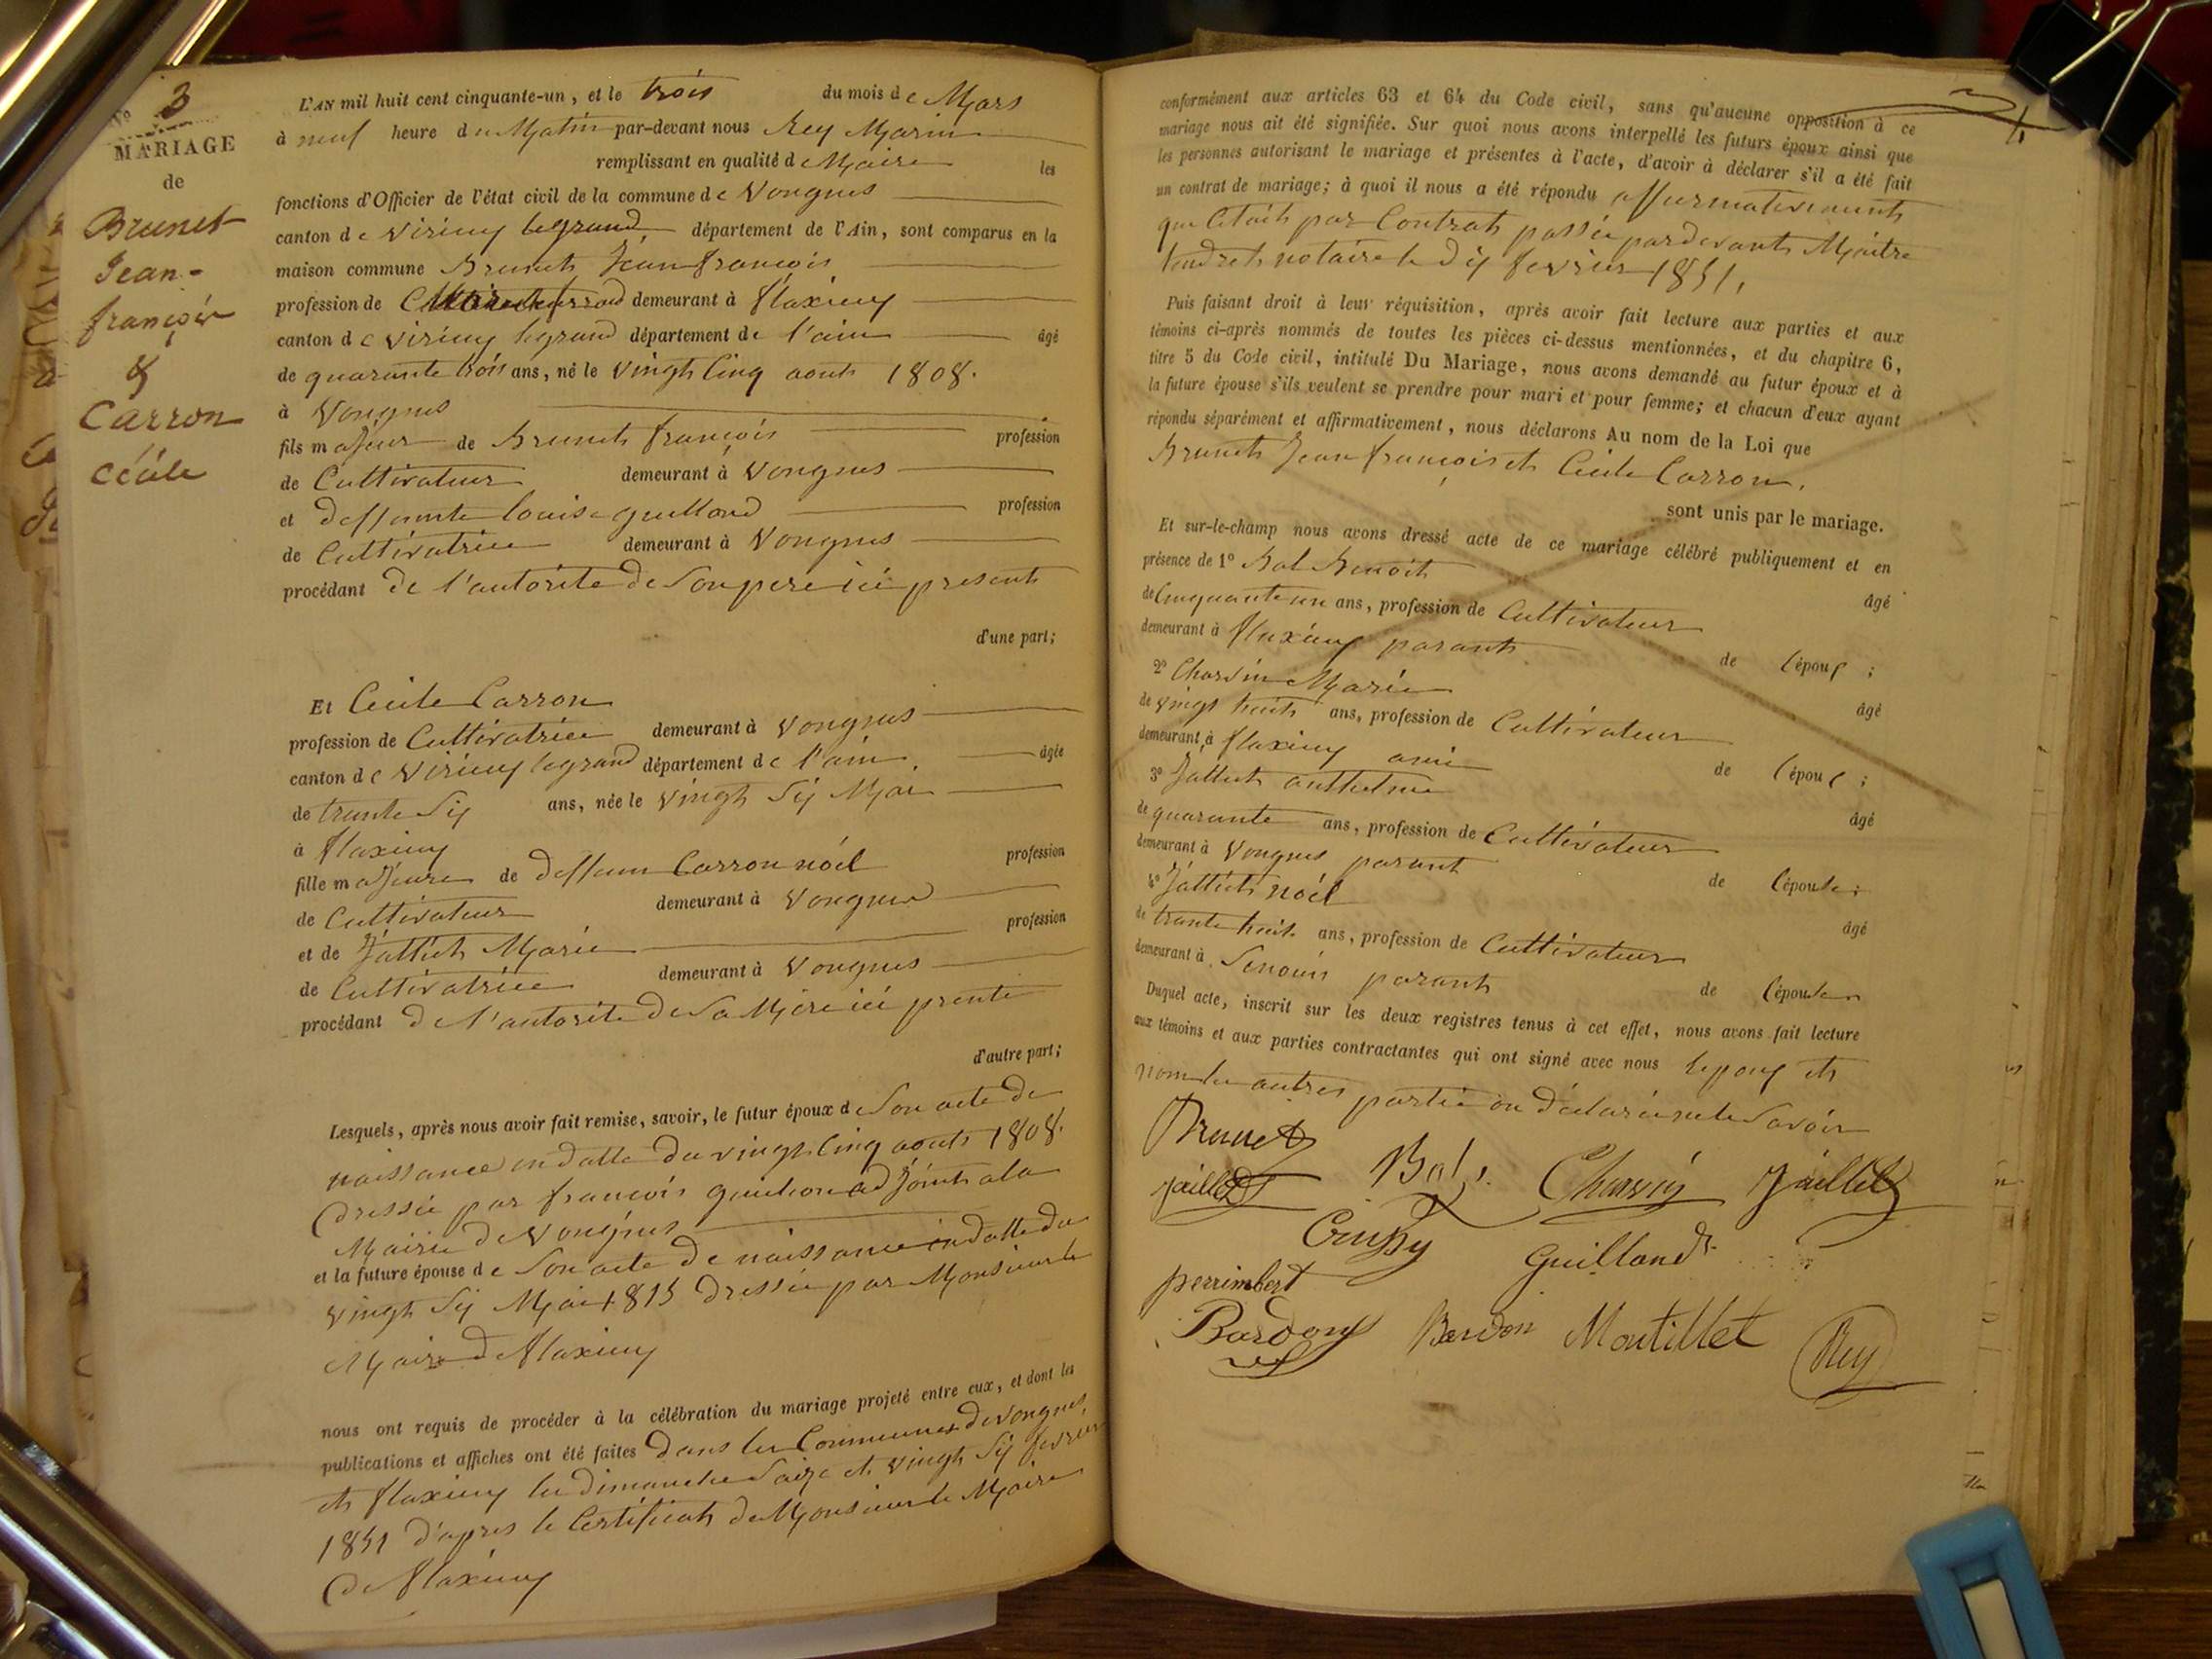 N° 3
MARIAGE
de
Brunet
Jean-
françois
&
Carron
Cécile
L'AN mil huit cent cinquante-un, et le trois du mois de Mars
à neuf heure du Matin par-devant nous Rey Marin
remplissant en qualité de Maire les
fonctions d'Officier de l'état civil de la commune de Vongnes
canton de virieu legrand département de l'Ain, sont comparus en la
maison commune Brunet Jean françois
profession de demeurant à flaxieu
canton de virieu legrand département de l'ain âgé
de quarante trois ans, né le vingt Cinq aout 1808.
à Vongnes
fils majeur de Brunet françois profession
de Cultivateur demeurant à Vongnes
et deffunte louise guilland profession
de Cultivatrice demeurant à Vongnes
procédant de l'autorite de Son pere ici present
d'une part;
Et Cecile Carron
profession de Cultivatrice demeurant à Vongnes
canton de Virieu legrand département de l'ain. âgée
de trante Six ans, née le vingt Six Mai
à flaxieu
fille majeure de deffun Carron noél profession
de Cultivateur demeurant à Vongnes
et de Jalliet Marie profession
de Cultivatrice demeurant à Vongnes
procédant de l'autorite de Sa Mere ici prente
d'autre part;
Lesquels, après nous avoir fait remise, savoir, le futur époux de Son acte de
naissance en datte du vingt Cinq aout 1808.
dressée par francois adjoint ala
Mairie de Vongnes
et la future épouse de Son acte de naissance en datte du
vingt Six Mai 1815 dressée par Monsieur le
Maire de flaxieu
nous ont requis de procéder à la célébration du mariage projeté entre eux, et dont les
publications et affiches ont été faites dans les Communes de Vongnes
et flaxieu les dimanche Saize et vingt Six fevrier
1851 d'apres le Certificat de Monsieur le Maire
de flaxieu
conformément aux articles 63 et 64 du Code civil, sans qu'aucune opposition à ce
mariage nous ait été signifiée. Sur quoi nous avons interpellé les futurs époux ainsi que
les personnes autorisant le mariage et présentes à l'acte, d'avoir à déclarer s'il a été fait
un contrat de mariage; à quoi il nous a été répondu affirmativement
que Cetait par Contrat passée par devant Maitre
notaire le dix fevrier 1851,
Puis faisant droit à leur réquisition, après avoir fait lecture aux parties et aux
témoins ci-après nommés de toutes les pièces ci-dessus mentionnées, et du chapitre 6,
titre 5 du Code civil, intitulé Du Mariage, nous avons demandé au futur époux et à
la future épouse s'ils veulent se prendre pour mari et pour femme; et chacun d'eux ayant
répondu séparément et affirmativement, nous déclarons Au nom de la Loi que
Brunet Jean françois et Cecile Carron.
sont unis par le mariage.
Et sur-le-champ nous avons dressé acte de ce mariage célébré publiquement et en
présence de 1° Bal Benoit âgé
de Cinquante un ans, profession de Cultivateur
demeurant à flaxieu parant de l'époux;
2° Charvin Marie âgé
de vingt huit ans, profession de Cultivateur
demeurant à flaxieu ami de l'époux;
3° Jalliet anthelme âgé
de quarante ans, profession de Cultivateur
demeurant à Vongnes parant de l'épouse;
4° Jalliet noél âgé
de trante huit ans, profession de Cultivateur
demeurant à parant de l'épouse
Duquel acte, inscrit sur les deux registres tenus à cet effet, nous avons fait lecture
aux témoins et aux parties contractantes qui ont signé avec nous lepoux et
non les autres partie on déclarée ne le Savoir
Brunet
jaillet Bal Charvin Jaillet
Crussy Guilland
perrimbert
Bardon Bardon Montillet Rey